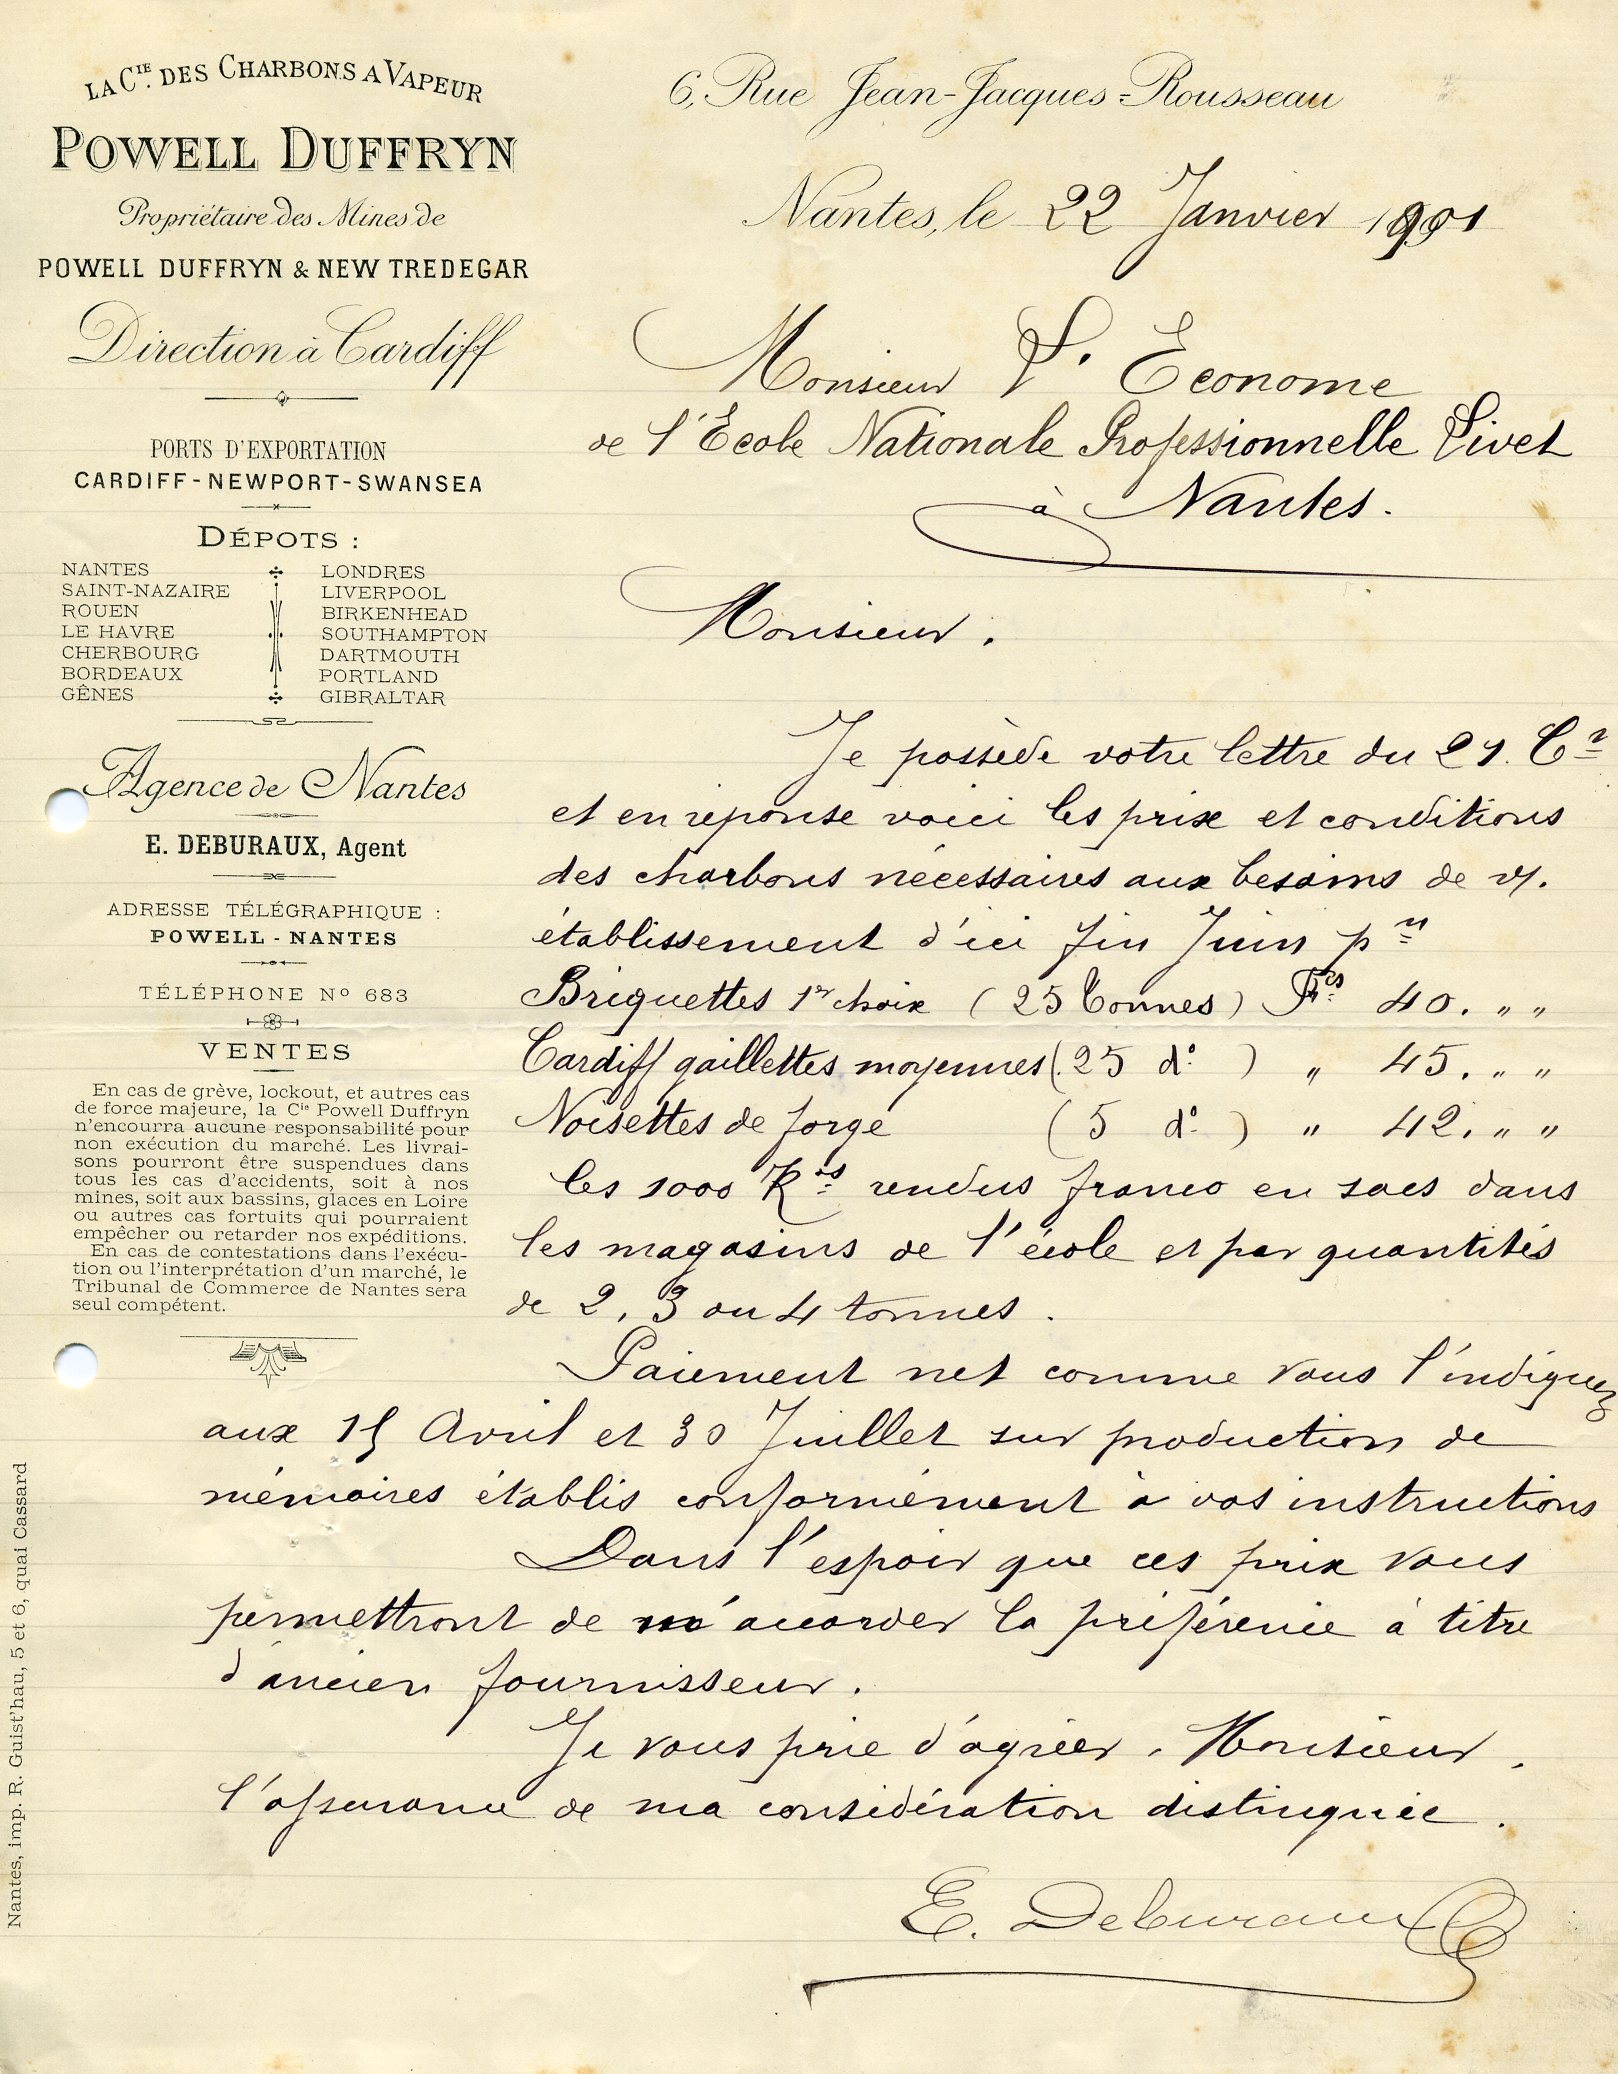 LA CIE. DES CHARBONS A VAPEUR
POWELL DUFFRYN
Propriétaire des Mines de
POWELL DUFFRYN & NEW TREDEGAR
Direction à Cardiff
PORTS D'EXPORTATION
CARDIFF-NEWPORT-SWANSEA
DÉPOTS :
NANTES
SAINT-NAZAIRE
ROUEN
LE HAVRE
CHERBOURG
BORDEAUX
GÊNES
LONDRES
LIVERPOOL
BIRKENHEAD
SOUTHAMPTON
DARTMOUTH
PORTLAND
GIBRALTAR
Agence de Nantes
E. DEBURAUX, Agent
ADRESSE TÉLÉGRAPHIQUE :
POWELL - NANTES
TÉLÉPHONE No 683
VENTES
En cas de grève, lockout, et autres cas
de force majeure, la Cie Powell Duffryn
n'encourra aucune responsabilité pour
non exécution du marché. Les livrai-
sons pourront être suspendues dans
tous les cas d'accidents, soit à nos
mines, soit aux bassins, glaces en Loire
ou autres cas fortuits qui pourraient
empêcher ou retarder nos expéditions.
En cas de contestations dans l'exécu-
tion ou l'interprétation d'un marché, le
Tribunal de Commerce de Nantes sera
seul compétent.
Nantes, imp. R. Guist'hau, 5 et 6, quai Cassard
6, Rue Jean-Jacques-Rousseau
Nantes, le 22 Janvier 1901
Monsieur L'Econome
de l'École Nationale Professionnelle Livet
à Nantes.
Monsieur.
Je possède votre lettre du 21. Ct
et en réponse voici les prix et conditions
des charbons nécessaires aux besoins de v/.
établissement d'ici fin Juin pn
Briquettes 1er choix (25 Tonnes) Fcs 40. " "
Cardiff gaillettes moyennes (25 do ) " 45. " "
Noisettes de forge (5 do ) " 42. " "
les 1000 Kos rendus franco en sacs dans
les magasins de l'école et par quantités
de 2, 3 ou 4 tonnes.
Paiement net comme vous l'indiquez
aux 15 Avril et 30 Juillet sur production de
mémoires établis conformément à vos instructions
Dans l'espoir que ces prix vous
permettront de m'accorder la préférence à titre
d'ancien fournisseur.
Je vous prie d'agréer, Monsieur,
l'assurance de ma considération distinguée.
E. Deburaux